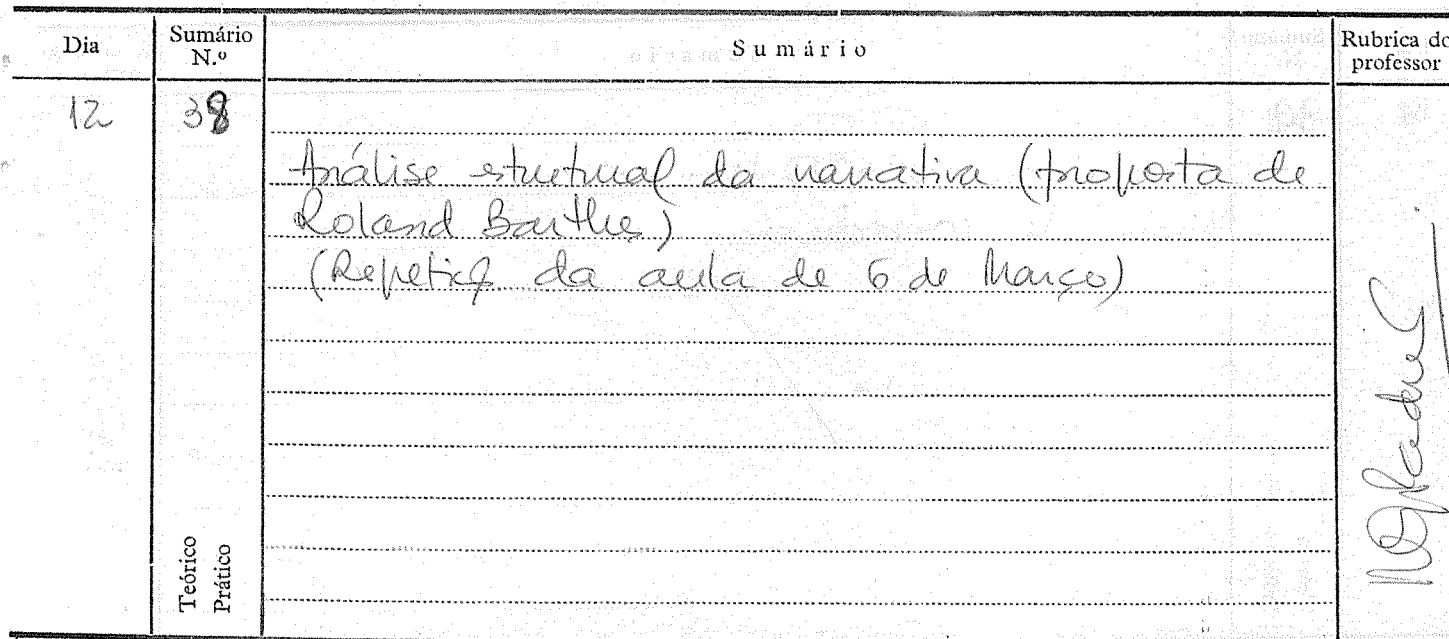 Dia
Sumário N.º
Sumário
Rubrica do professor
12
38
Análise estrutural da narrativa (proposta de
Roland Barthes)
(Repetiç. da aula de 6 de Março)
Teórico
Prático